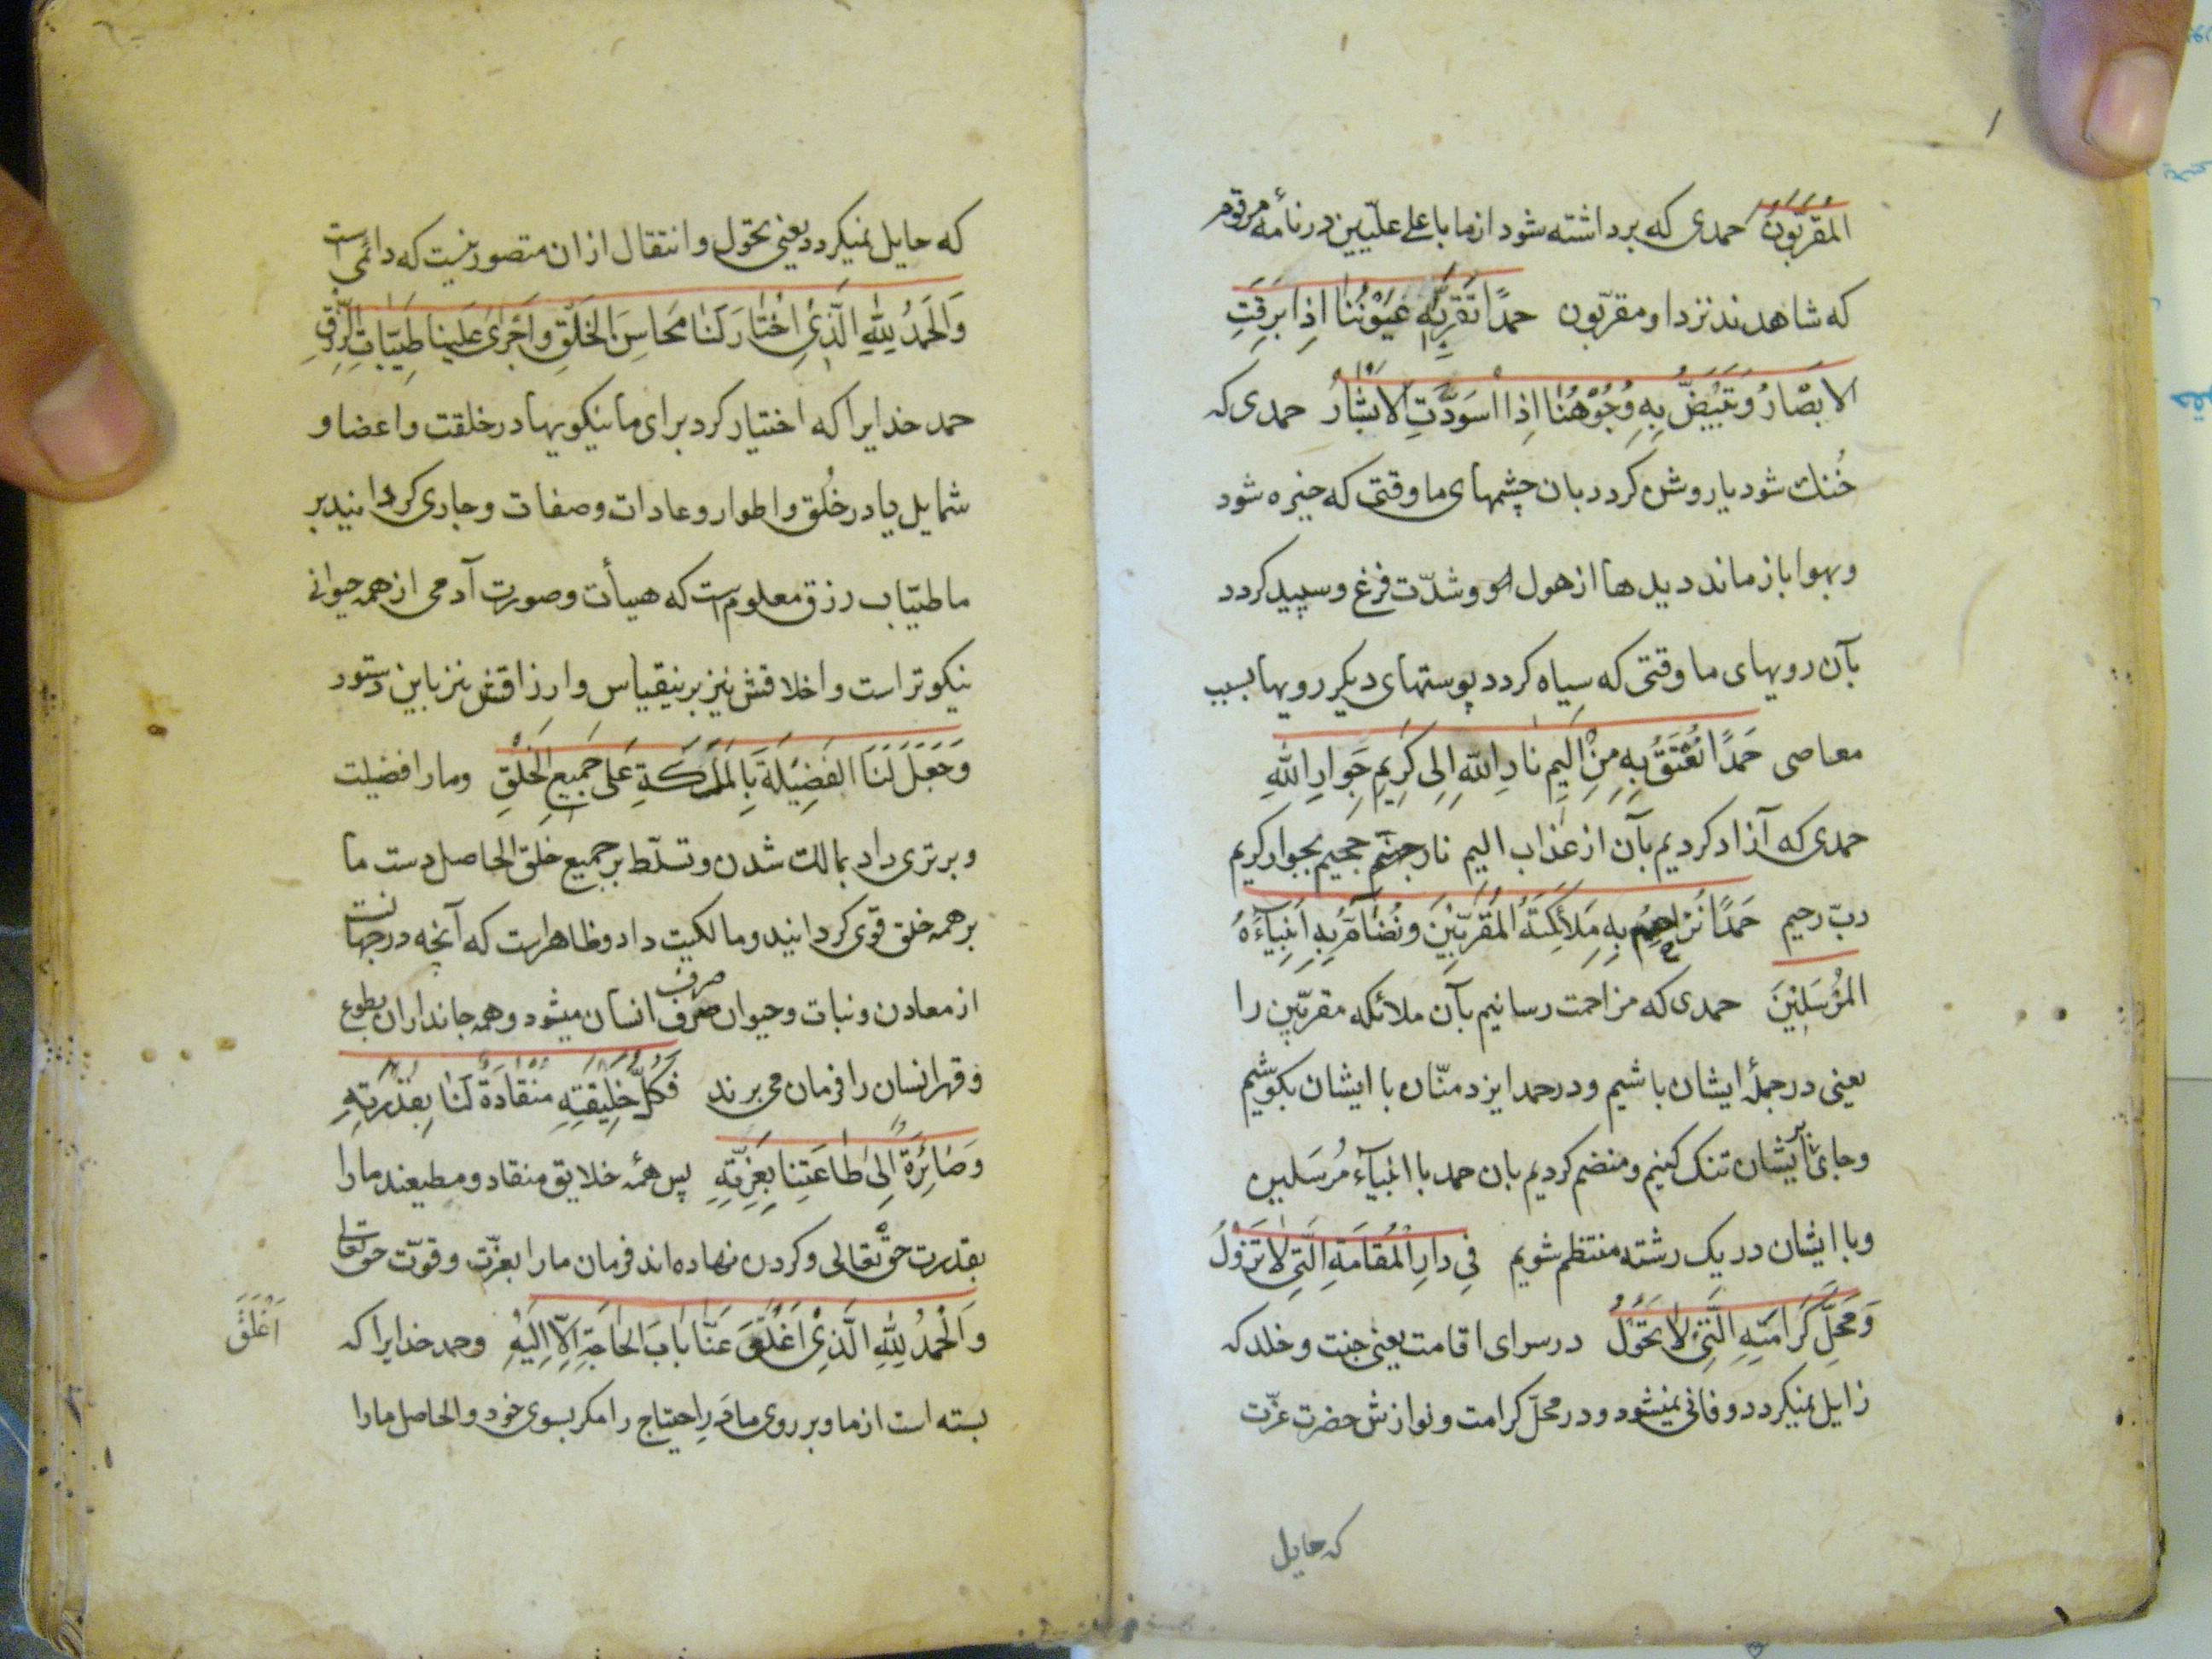 المُقَرَّبُونَ حمدی که برداشته شود از ما باعلی علّیّین در نامهٔ مرقوم
که شاهدند نزد او مقرّبون حمدًا تَقَرُّ بِهِ عُیُوْنُنٰا اِذٰا بَرِقَتِ
الاَبْصٰارُ وَتَبْیَضُّ بِهِ وُجُوْهُنٰا اِذٰا اسْوَدَّتِ الاَبْشٰارُ حمدی که
خُنك شود یا روشن کردد بان چشمهای ما وقتی که خیره شود
و بهوا باز ماند دیدها از هول او و شدّت فزع و سپید کردد
بآن رویهای ما وقتی که سیاه کردد پوستهای دیکر رویها بسبب
معاصی حَمدًا نُعْتَقُ بِهِ مِنْ اَلِیمِ نٰارِ اللّٰهِ اِلی کَرِیمِ جَوٰارِ اللّٰهِ
حمدی که آزاد کردیم بآن از عذاب الیم نار جهنّم جحیم بجوار کریم
ربّ رحیم حَمدًا نُزٰاحِمُ بِهِ مَلاٰئِکَتَهُ المُقَرَّبِیْنَ وَنُضٰامُّ بِهِ اَنْبِیٰآءَهُ
المُرْسَلِیْنَ حمدی که مزاحمت رسانیم بآن ملائکه مقرّبین را
یعنی در جملهٔ ایشان باشیم و در حمد ایزد منّان با ایشان بکوشیم
و جای بر ایشان تنک کنیم و منضم کردیم بان حمد با انبیآء مُرسَلین
و با ایشان در یک رشته منتظم شویم فِی دٰارِ الْمُقٰامَةِ الَّتِی لاٰ تَزُوْلُ
وَمَحَلِّ کَرٰامَتِهِ الَّتِیْ لاٰ تَحُوْلُ در سرای اقامت یعنی جنت و خلد که
زایل نمیکردد و فانی نمیشود و در محلّ کرامت و نوازش حضرت عزّت
که حایل
که حایل نمیکردد یعنی تحوّل و انتقال از ان متصور نیست که دائمی است
وَالحَمدُ لِلّٰهِ الَّذِیْ اخْتٰارَ لَنٰا مَحٰاسِنَ الخَلْقِ وَاَجْرٰی عَلَینٰا طَیِّبٰاتِ الرِّزْقِ
حمد خدایرا که اختیار کرد برای ما نیکویها در خلقت و اعضا و
شمایل یا در خُلق و اطوار و عادات و صفات و جاری کردانید بر
ما طیّبات رزق معلوم است که هیأت و صورت آدمی از همه حیوانی
نیکوتر است و اخلاقش نیز برینقیاس و ارزاقش نیز باین دستور
وَجَعَلَ لَنَا الفَضِیْلَةَ بِالمَلَکَةِ عَلٰی جَمِیعِ الخَلْقِ و ما را فضیلت
و برتری داد بمالك شدن و تسلّط بر جمیع خلق الحاصل دست ما
بر همه خلق قوی کردانید و مالکیت داد و ظاهر است که آنچه در جهانست
از معادن و نبات و حیوان صرف صرف انسان میشود و همه جانداران بطوع
و قهر انسان را فرمان می برند فَکُلُّ خَلِیْقَتِهِ مُنْقٰادَةٌ لَنٰا بِقُدْرَتِهِ
وَصٰائِرَةٌ اِلٰی طٰاعَتِنٰا بِعِزَّتِهِ پس همهٔ خلایق منقاد و مطیعند ما را
بقدرت حقّ تعالی و کردن نهاده اند فرمان ما را بعزّت و قوّت حق تعالی
وَالْحَمْدُ لِلّٰهِ الَّذِیْ اَغْلَقَ عَنّٰا بٰابَ الحٰاجَةِ اِلّٰا اِلَیْهِ و حمد خدایرا که
اَغْلَقَ
بسته است از ما و بر روی ما در احتیاج را مکر بسوی خود و الحاصل ما را